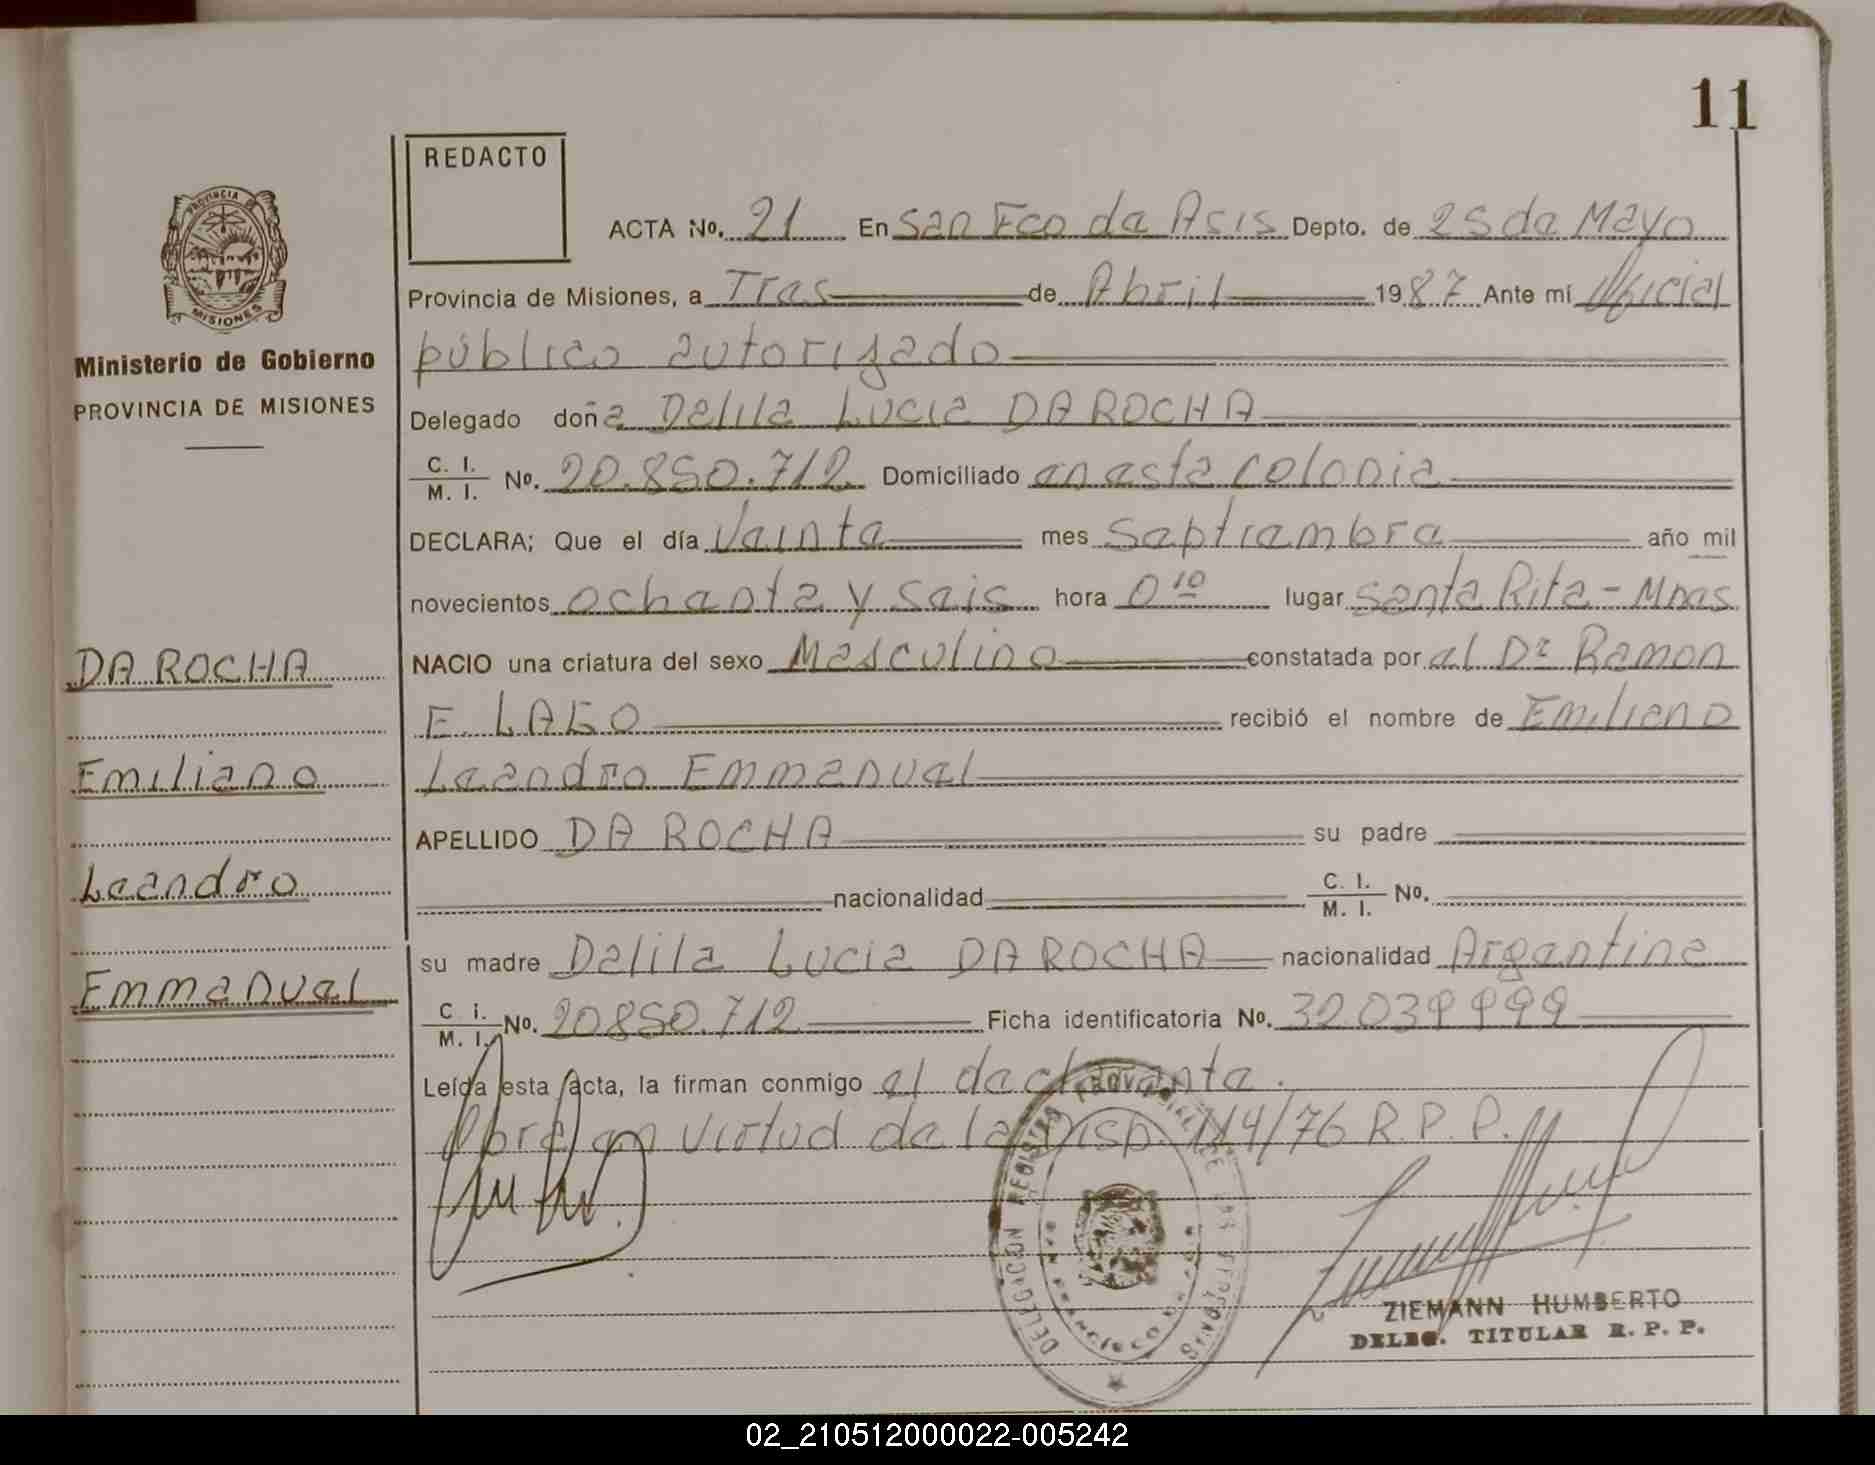 11
REDACTO
PROVINCIA DE
MISIONES
Ministerio de Gobierno
PROVINCIA DE MISIONES
ACTA No. 21 En San Fco de Asis Depto. de 25 de Mayo
Provincia de Misiones, a Tres de Abril 1987 Ante mí Oficial
público autorizado
Delegado doña Delila Lucia DA ROCHA
C. I. / M. I. No. 20.850.712 Domiciliado en esta colonia
DECLARA; Que el día Veinte mes Septiembre año mil
novecientos ochenta y seis hora 0 10 lugar Santa Rita - Mnes
NACIO una criatura del sexo Masculino constatada por el Dr Ramon
E. LAGO recibió el nombre de Emiliano
Leandro Emmanuel
APELLIDO DA ROCHA su padre
nacionalidad C. I. / M. I. No.
su madre Delila Lucia DA ROCHA nacionalidad Argentina
C. i. / M. I. No. 20850.712 Ficha identificatoria No. 32.039999
Leída esta acta, la firman conmigo el declarante.
Obre en virtud de la Disp. 114/76 R.P.P.
DA ROCHA
Emiliano
Leandro
Emmanuel
DELEGACIÓN REGISTRO PROVINCIAL DE LAS PERSONAS
ZIEMANN HUMBERTO
DELEG. TITULAR R. P. P.
02_210512000022-005242